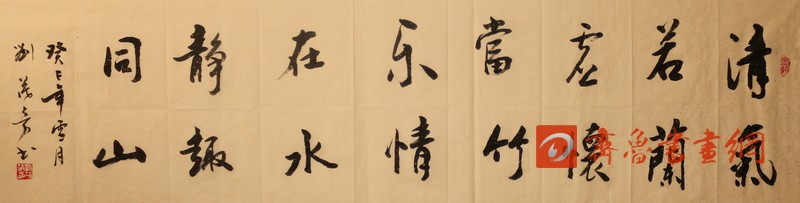 清氣
若蘭
虛懷
當竹
乐情
在水
静趣
同山
癸巳年雪月
書
齊魯書畫網